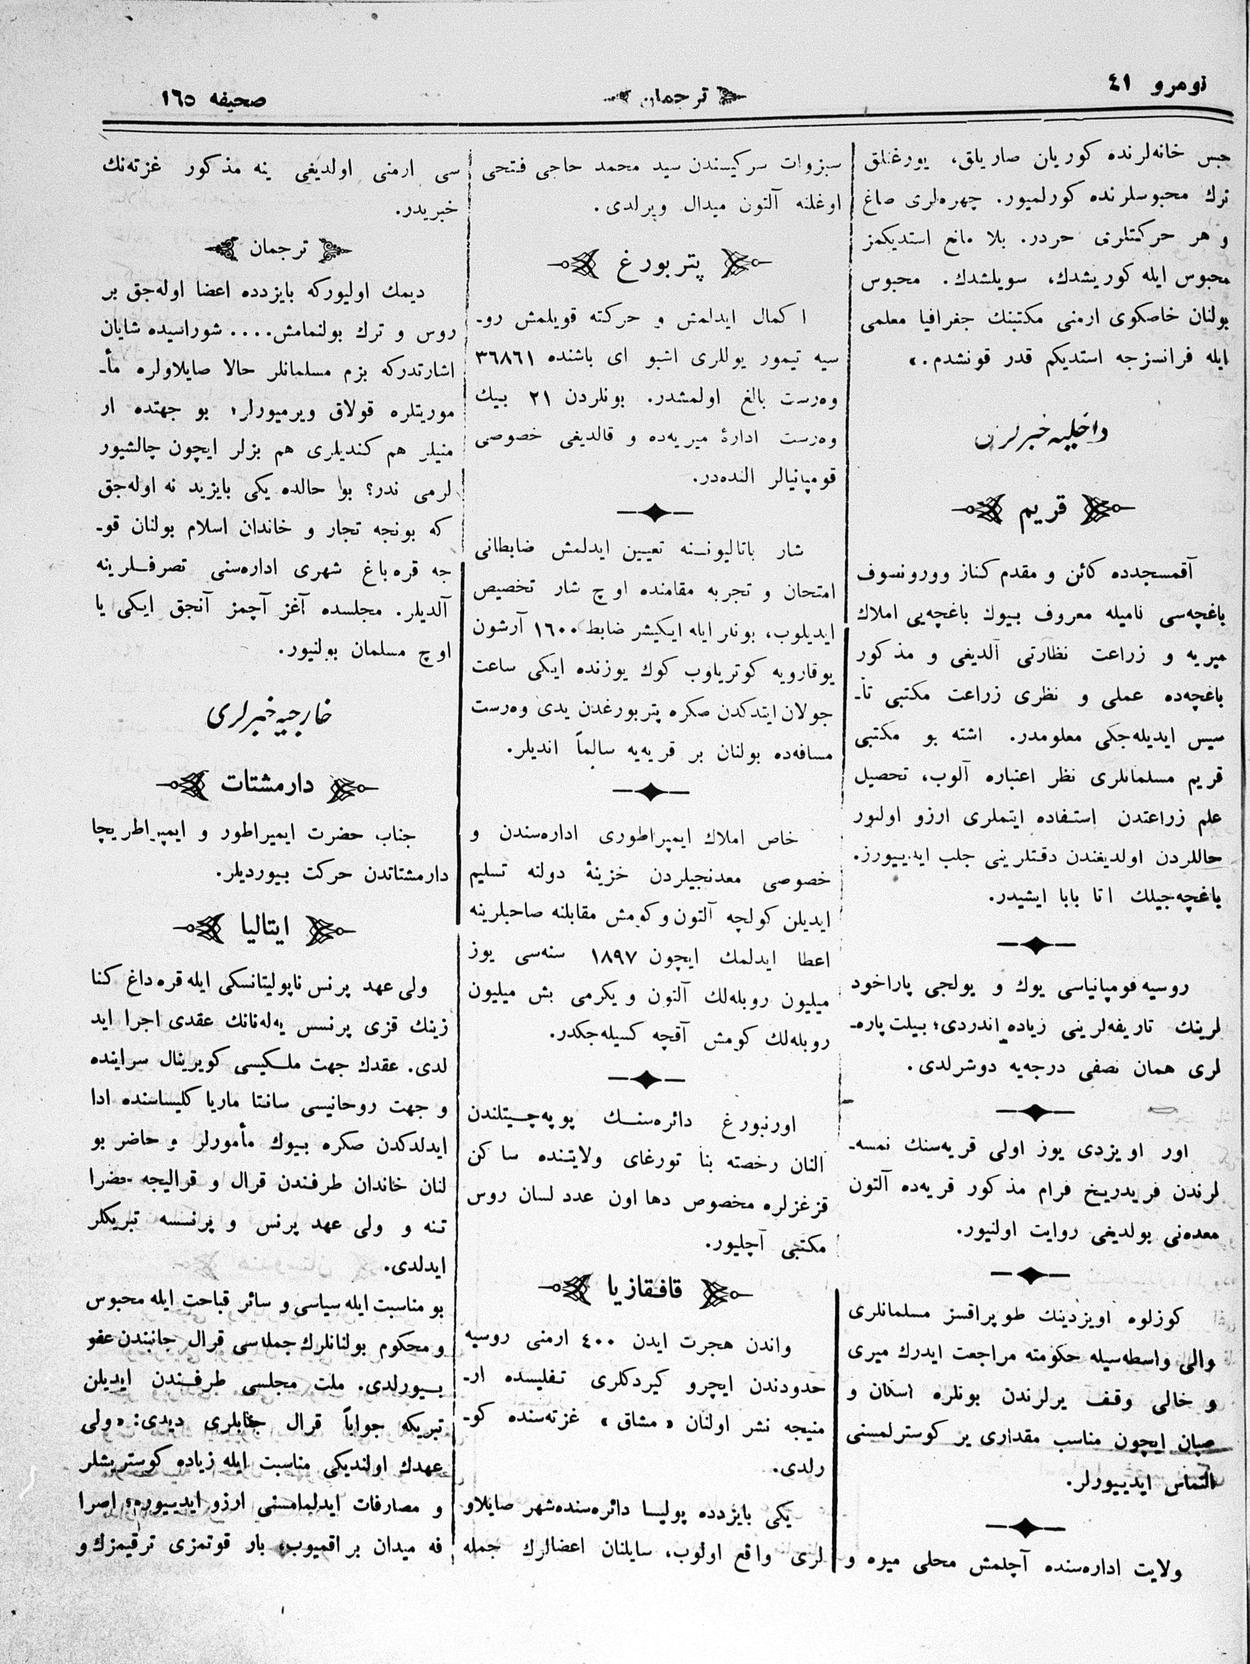 نومرو ٤١
ترجمان
صحیفه ١٦٥
حبس خانه‌لرنده کوریان صاریلق، یورغنلق
ترك محبوسلرنده كورلمیور. چهره‌لری صاغ
و هر حركتلری حردر. بلا مانع استدیكمز
محبوس ایله كوریشدك، سویلشدك. محبوس
بولنان خاصكوی ارمنی مكتبنك جغرافیا معلمی
ایله فرانسزجه استدیكم قدر قونشدم.»
داخلیه خبرلری
قریم
آقمسجدده كائن و مقدم كناز وورونسوف
باغچه‌سی نامیله معروف بیوك باغچه‌یی املاك
میریه و زراعت نظارتی آلدیغی و مذكور
باغچه‌ده عملی و نظری زراعت مكتبی تأ-
سیس ایدیله‌جكی معلومدر. اشته بو مكتبی
قریم مسلمانلری نظر اعتباره آلوب، تحصیل
علم زراعتدن استفاده ایتملری ارزو اولنور
حاللردن اولدیغندن دقتلرینی جلب ایدییورز.
باغچه‌جیلك اتا بابا ایشیدر.
روسیه قومپانیاسی یوك و یولجی پاراخود
لرینك تاریفه‌لرینی زیاده اندردی؛ بیلت پاره-
لری همان نصفی درجه‌یه دوشرلدی.
اور اویزدی یوز اولی قریه‌سنك نمسه-
لرندن فریدریخ فرام مذكور قریه‌ده آلتون
معدنی بولدیغی روایت اولنیور.
كوزلوه اویزدینك طوپراقسز مسلمانلری
والی واسطه‌سیله حكومته مراجعت ایدرك میری
و خالی وقف یرلرندن بونلره اسكان و
صبان ایچون مناسب مقداری یر كوسترلمسنی
التماس ایدییورلر.
ولایت اداره‌سنده آچلمش محلی میوه و
سبزوات سركیسندن سید محمد حاجی فتحی
اوغلنه آلتون میدال ویرلدی.
پتربورغ
اكمال ایدلمش و حركته قویلمش رو-
سیه تیمور یوللری اشبو ای باشنده ٣٦٨٦١
وه‌رست بالغ اولمشدر. بونلردن ٢١ بیك
وه‌رست ادارهٔ میریه‌ده و قالدیغی خصوصی
قومپانیالر النده‌در.
شار باتالیونـنه تعیین ایدلمش ضابطانی
امتحان و تجربه مقامنده اوچ شار تخصیص
ایدیلوب، بوندر ایله ایكیشر ضابط ١٦٠٠ آرشون
یوقارویه كوتریلوب كوك یوزنده ایكی ساعت
جولان ایتدكدن صكره پتربورغدن یدی وه‌رست
مسافه‌ده بولنان بر قریه‌یه سالماً اندیلر.
خاص املاك ایمپراطوری اداره‌سندن و
خصوصی معدنجیلردن خزینهٔ دولته تسلیم
ایدیلن كولچه آلتون و كومش مقابلنه صاحبلرینه
اعطا ایدلمك ایچون ١٨٩٧ سنه‌سی یوز
میلیون روبله‌لك آلتون و یكرمی بش میلیون
روبله‌لك كومش آقچه كسیله‌جكدر.
اورنبورغ دائره‌سنـك پوپه‌چیتلندن
النان رخصته بنا تورغای ولایتنده ساكن
قزغزلره مخصوص دها اون عدد لسان روس
مكتبی آچلیور.
قافقازیا
واندن هجرت ایدن ٤٠٠ ارمنی روسیه
حدودندن ایچرو كیردكلری تفلیسده ار-
منیجه نشر اولنان «مشاق» غزته‌سنده كو-
رلدی.
یكی بایزدده پولیسا دائره‌سنده شهر صایلاو
لری واقع اولوب، سایلنان اعضالرك جمله
سی ارمنی اولدیغی ینه مذكور غزته‌نك
خبریدر.
ترجمان
دیمك اولیوركه بایزدده اعضا اوله‌جق بر
روس و ترك بولنمامش.... شوراسیده شایان
اشارتدركه بزم مسلمانلر حالا صایلاولره مأ-
موریتلره قولاق ویرمیورلر؛ بو جهتده ار
منیلر هم كندیلری هم بزلر ایچون چالشیور
لرمی ندر؟ بو حالده یكی بایزید نه اوله‌جق
كه بونجه تجار و خاندان اسلام بولنان قو-
جه قره باغ شهری اداره‌سنی تصرفلرینه
آلدیلر. مجلسده آغز آچمز آنجق ایكی یا
اوچ مسلمان بولنیور.
خارجیه خبرلری
دارمشتات
جناب حضرت ایمپراطور و ایمپراطریچا
دارمشتاتدن حركت بیوردیلر.
ایتالیا
ولی عهد پرنس ناپولیتانسكی ایله قره داغ كنا
زینك قزی پرنسس یه‌له‌نانك عقدی اجرا اید
لدی. عقدك جهت ملكیسی كویرینال سراینده
و جهت روحانیسی سانتا ماریا كلیساسنده ادا
ایدلدكدن صكره بیوك مأمورلر و حاضر بو
لنان خاندان طرفندن قرال و قرالیجه حضرا
تنه و ولی عهد پرنس و پرنسسه تبریكلر
ایدلدی.
بو مناسبت ایله سیاسی و سائر قباحت ایله محبوس
و محكوم بولنانلرك جمله‌سی قرال جانبندن عفو
بیورلدی. ملت مجلسی طرفندن ایدیلن
تبریكه جواباً قرال جنابلری دیدی: «ولی
عهدك اولندیكی مناسبت ایله زیاده كوستریشلر
و مصارفات ایدلمامسنی ارزو ایدییورم؛ اصرا
فه میدان براقمیوب، بار قوتمزی ترقیمزك و